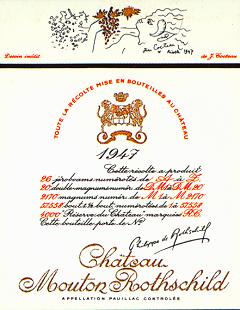 Jean Cocteau
1947
Dessin inédit
de J. Cocteau
TOUTE LA RÉCOLTE MISE EN BOUTEILLES AU CHÂTEAU
1947
Cette récolte a produit
26 jéroboams numérotés de A à Z
20 double-magnums num. de D.M.1 à D.M.20
2170 magnums numér. de M 1 à M 2170
bout. & ½ bout. numérotées de 1 à
4000 "Réserve du Château" marquées R.C.
Cette bouteille porte le No
Philippe de Rothschild
Château
Mouton Rothschild
APPELLATION PAUILLAC CONTRÔLÉE